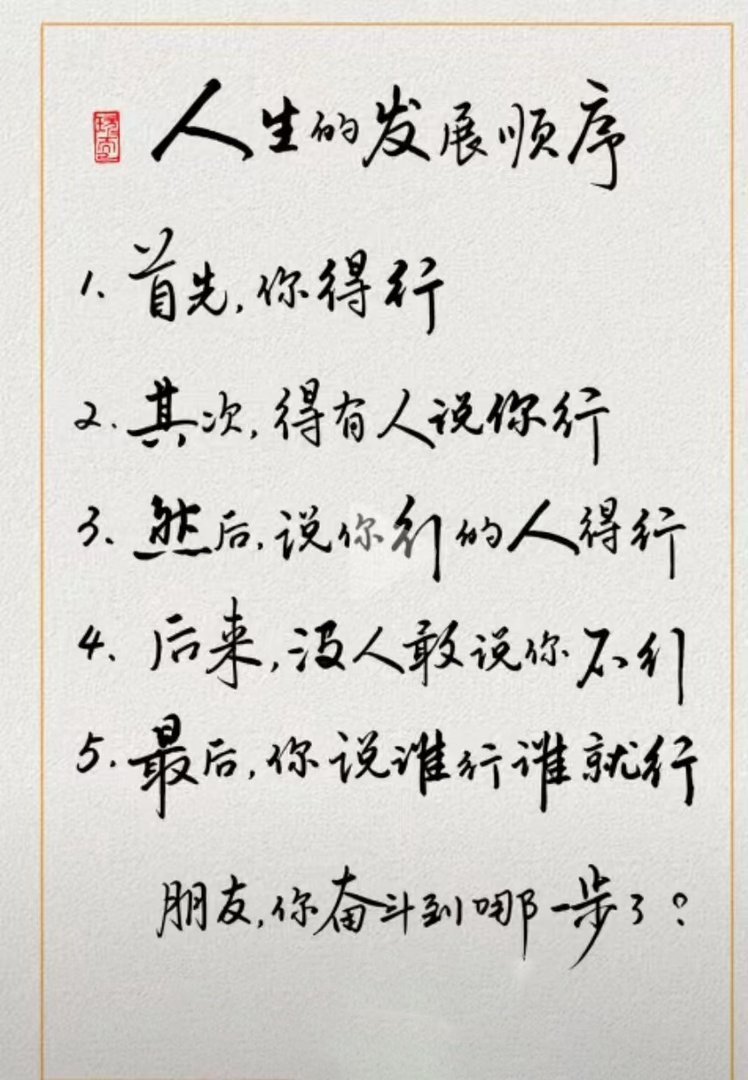 人生的发展顺序
1、首先,你得行
2.其次,得有人说你行
3、然后,说你行的人得行
4、后来,没人敢说你不行
5.最后,你说谁行谁就行
朋友,你奋斗到哪一步了?